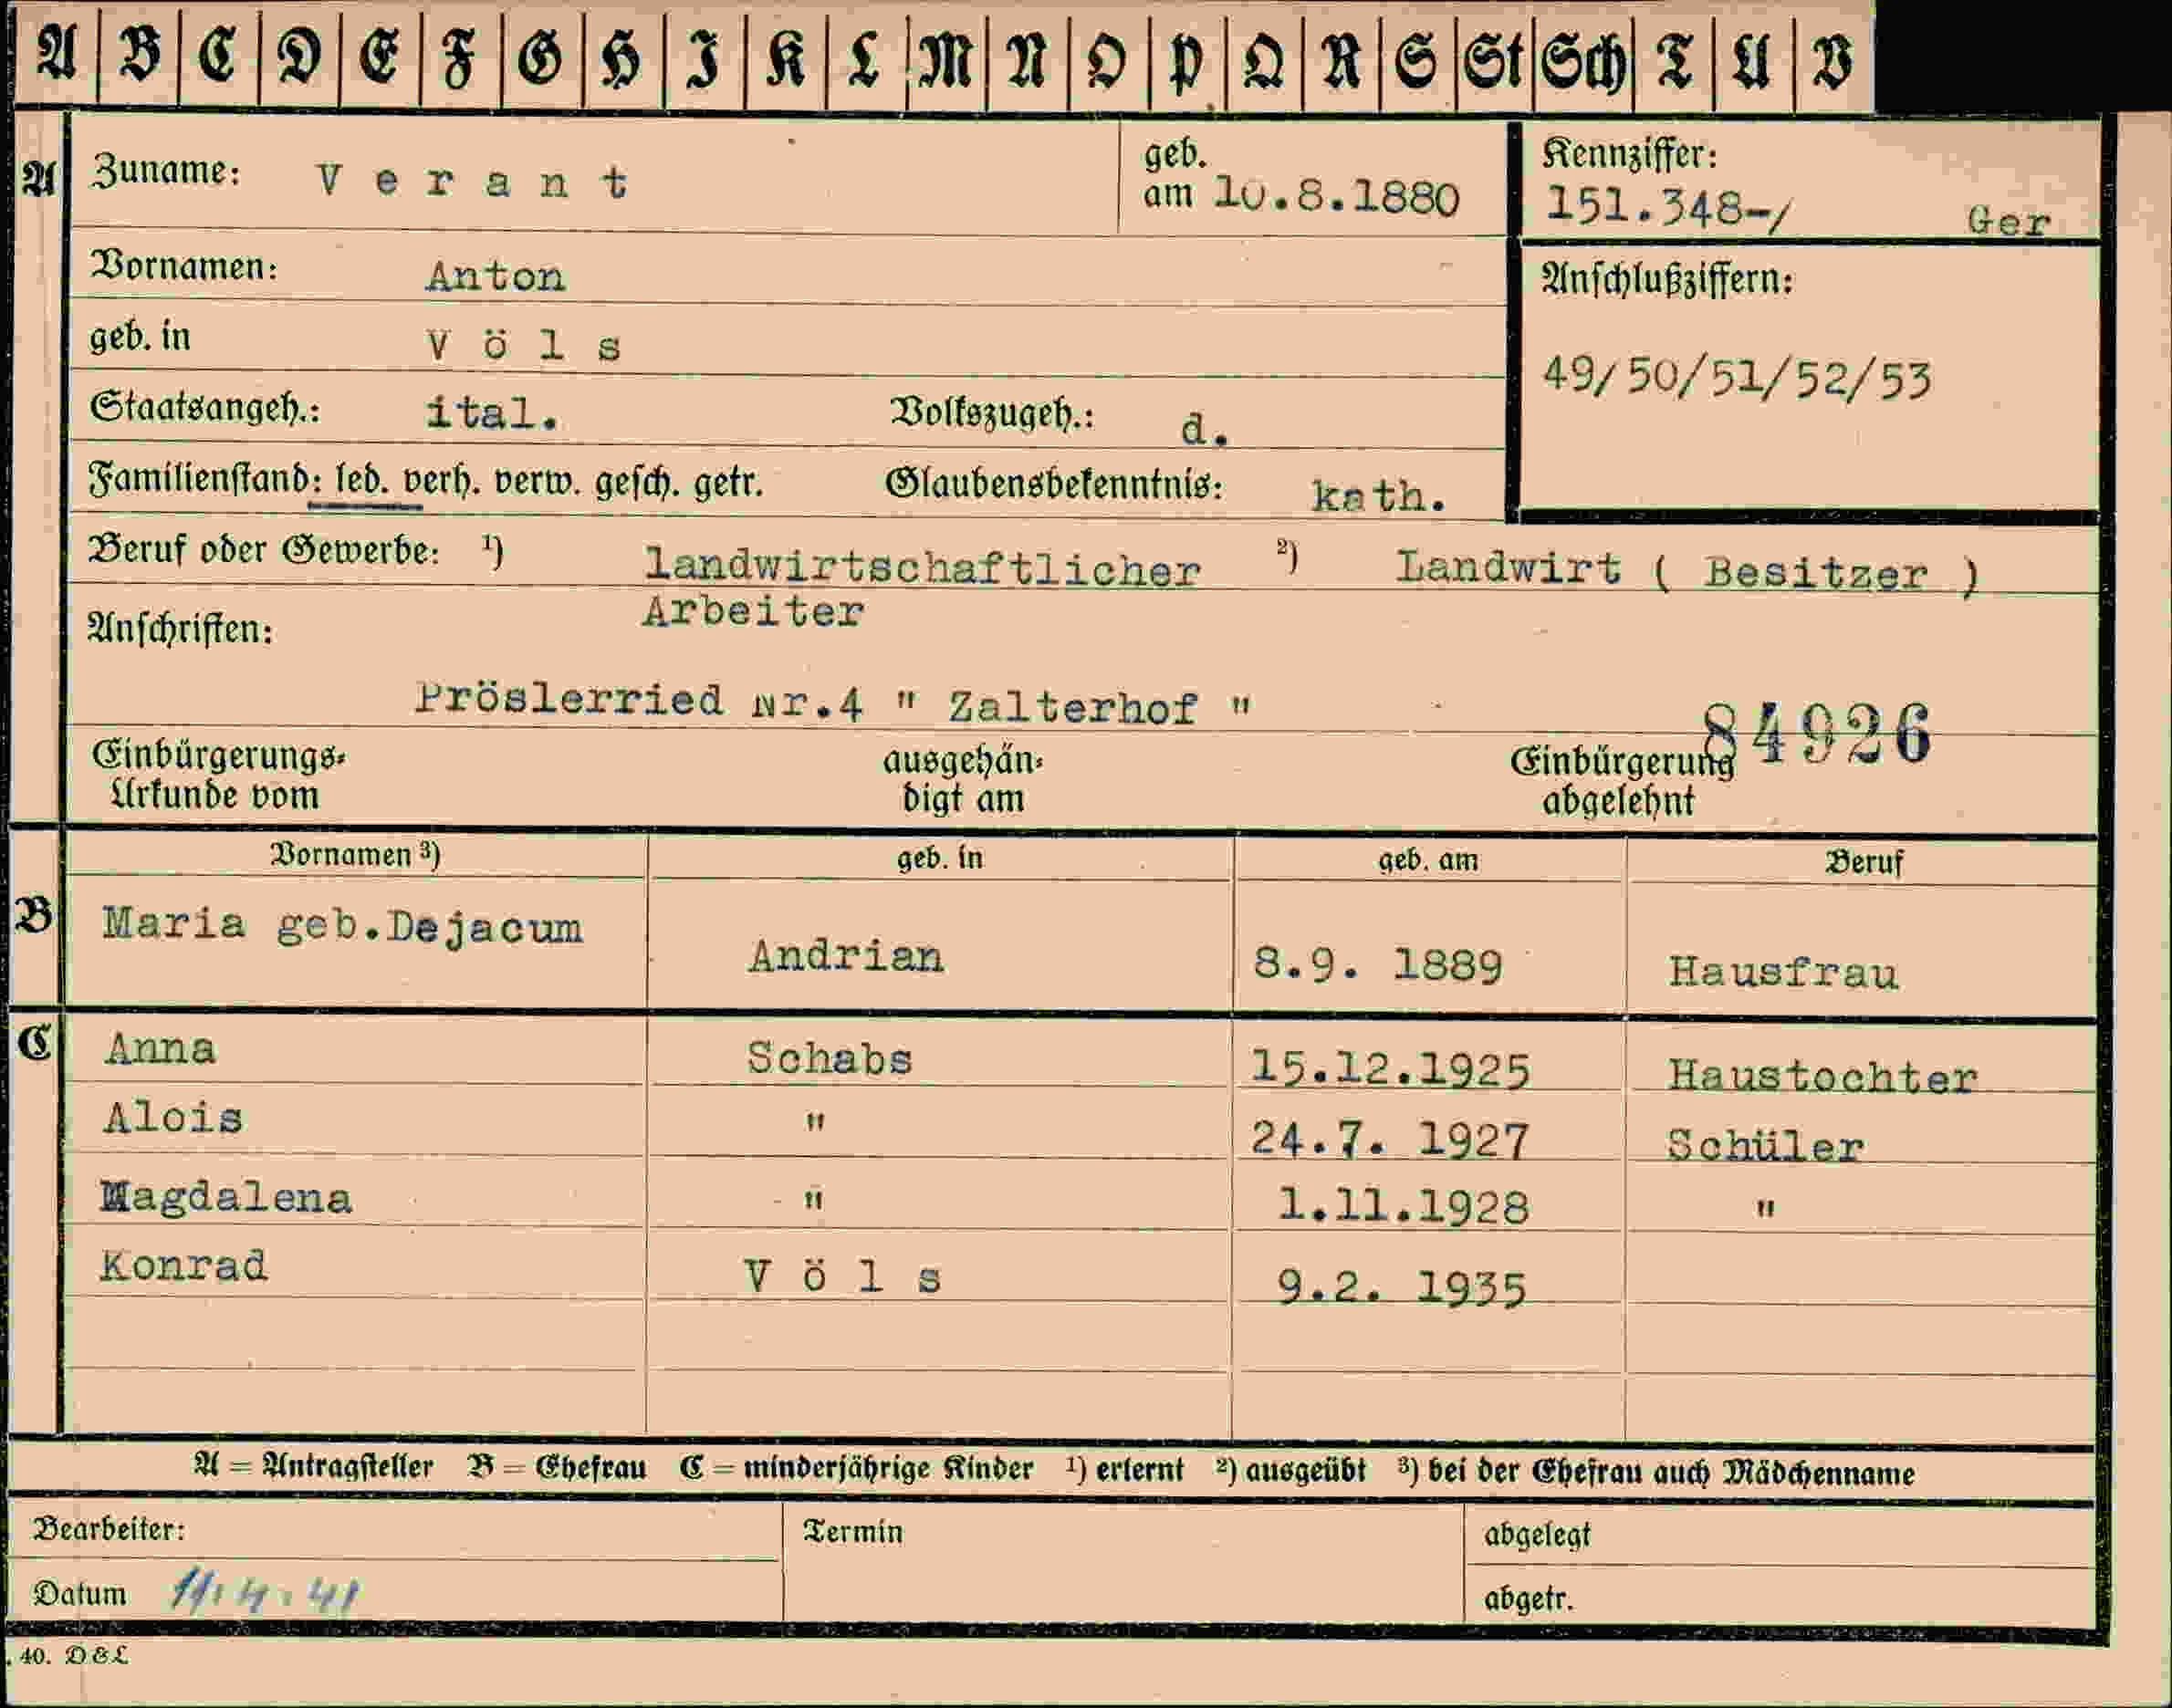 A B C D E F G H I K L M N O P Q R S St Sch T U V
A Zuname: V e r a n t geb. am 10.8.1880 Kennziffer: 151.348-/ Ger
Vornamen: Anton Anschlußziffern:
geb. in V ö l s 49/50/51/52/53
Staatsangeh.: ital. Volkszugeh.: d.
Familienstand: led. verh. verw. gesch. getr. Glaubensbekenntnis: kath.
Beruf oder Gewerbe: 1) landwirtschaftlicher 2) Landwirt ( Besitzer )
Arbeiter
Anschriften:
Pröslerried Nr.4 " Zalterhof "
84926
Einbürgerungs- ausgehän- Einbürgerung
Urkunde vom digt am abgelehnt
Vornamen 3) geb. in geb. am Beruf
B Maria geb.Dejacum Andrian 8.9. 1889 Hausfrau
C Anna Schabs 15.12.1925 Haustochter
Alois " 24.7. 1927 Schüler
Magdalena " 1.11.1928 "
Konrad V ö l s 9.2. 1935
A = Antragsteller B = Ehefrau C = minderjährige Kinder 1) erlernt 2) ausgeübt 3) bei der Ehefrau auch Mädchenname
Bearbeiter: Termin abgelegt
Datum 11.4.41 abgetr.
. 40. D & L